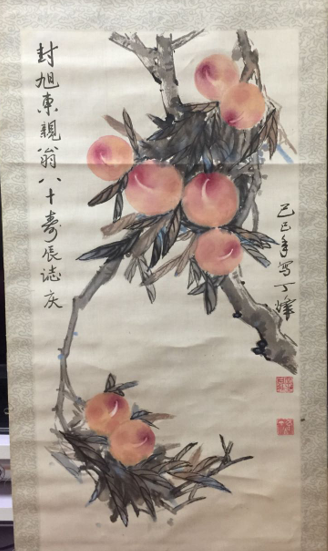 封旭東親翁八十寿辰誌庆
己巳年写丁